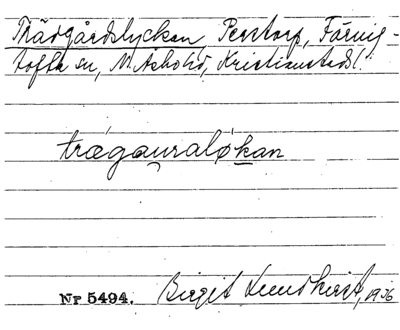 Trädgårdslyckan, Perstorp, Färing-
tofta sn, N. Åsbo hd, Kristianstads l.
trægauraløkan
Nr 5494. Birgit Lundkvist, 1936